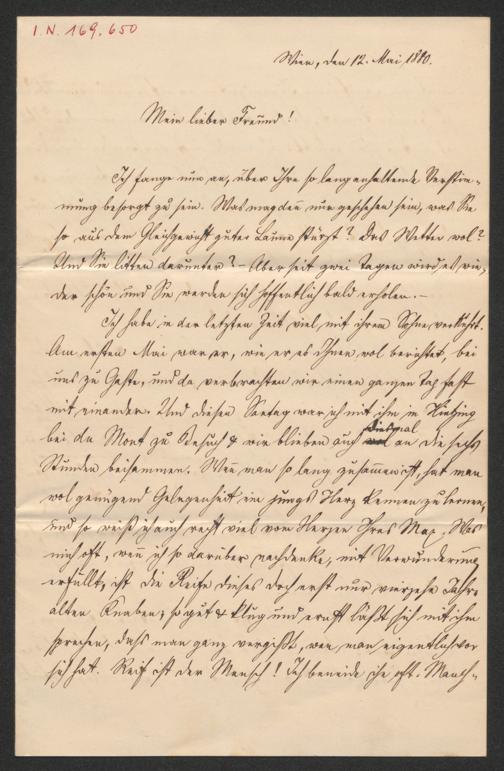 I.N. 169.650
Wien, den 12. Mai 1890.
Mein lieber Freund!
Ich fange nun an, über Ihre so langanhaltende Verstim-
mung besorgt zu sein. Was mag deñ nun geschehen sein, was Sie
so aus dem Gleichgewicht guter Laune stürzt? Das Wetter wol?
Und Sie litten darunter? – Aber seit zwei Tagen wird es wie-
der schön und Sie werden sich hoffentlich bald erholen. –
Ich habe in der letzten Zeit viel mit ihrem Sohne verkehrt.
Am ersten Mai war er, wie er es Ihnen wol berichtet, bei
uns zu Gaste, und da verbrachten wir einen ganzen Tag fast
mit einander. Und diesen Sontag war ich mit ihm in Hietzing
bei du Mont zu Besuch & wir blieben auch diesmal an die sechs
Stunden beisammen. Weñ man so lang zusam̄en ist, hat man
wol genügend Gelegenheit ein junges Herz kennen zu lernen,
und so weiß ich auch recht viel vom Herzen Ihres Max. Was
mich oft, weñ ich so darüber nachdenke, mit Verwunderung
erfüllt, ist die Reife dieses doch erst nur vierzehn Jahre
alten Knaben; so gut & klug und ernst läßt sich mit ihm
sprechen, dass man ganz vergißt, wen man eigentlich vor
sich hat. Reif ist der Mensch! Ich beneide ihn oft. Manch-